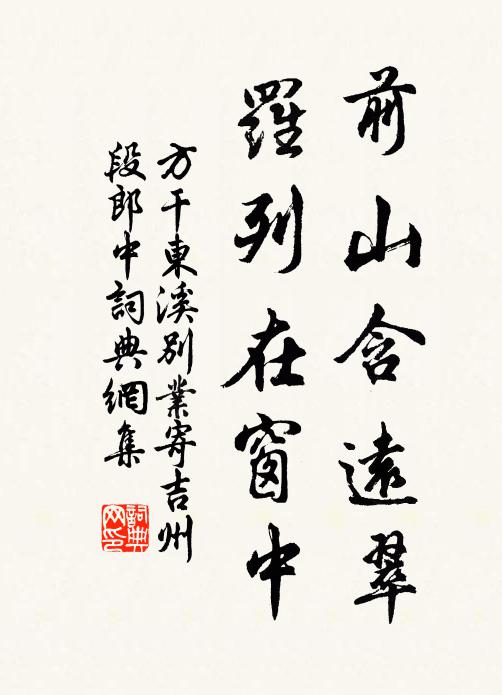 前山含遠翠
羅列在窗中
方干東溪別業寄吉州
段郎中詞典網集
詞典
网印